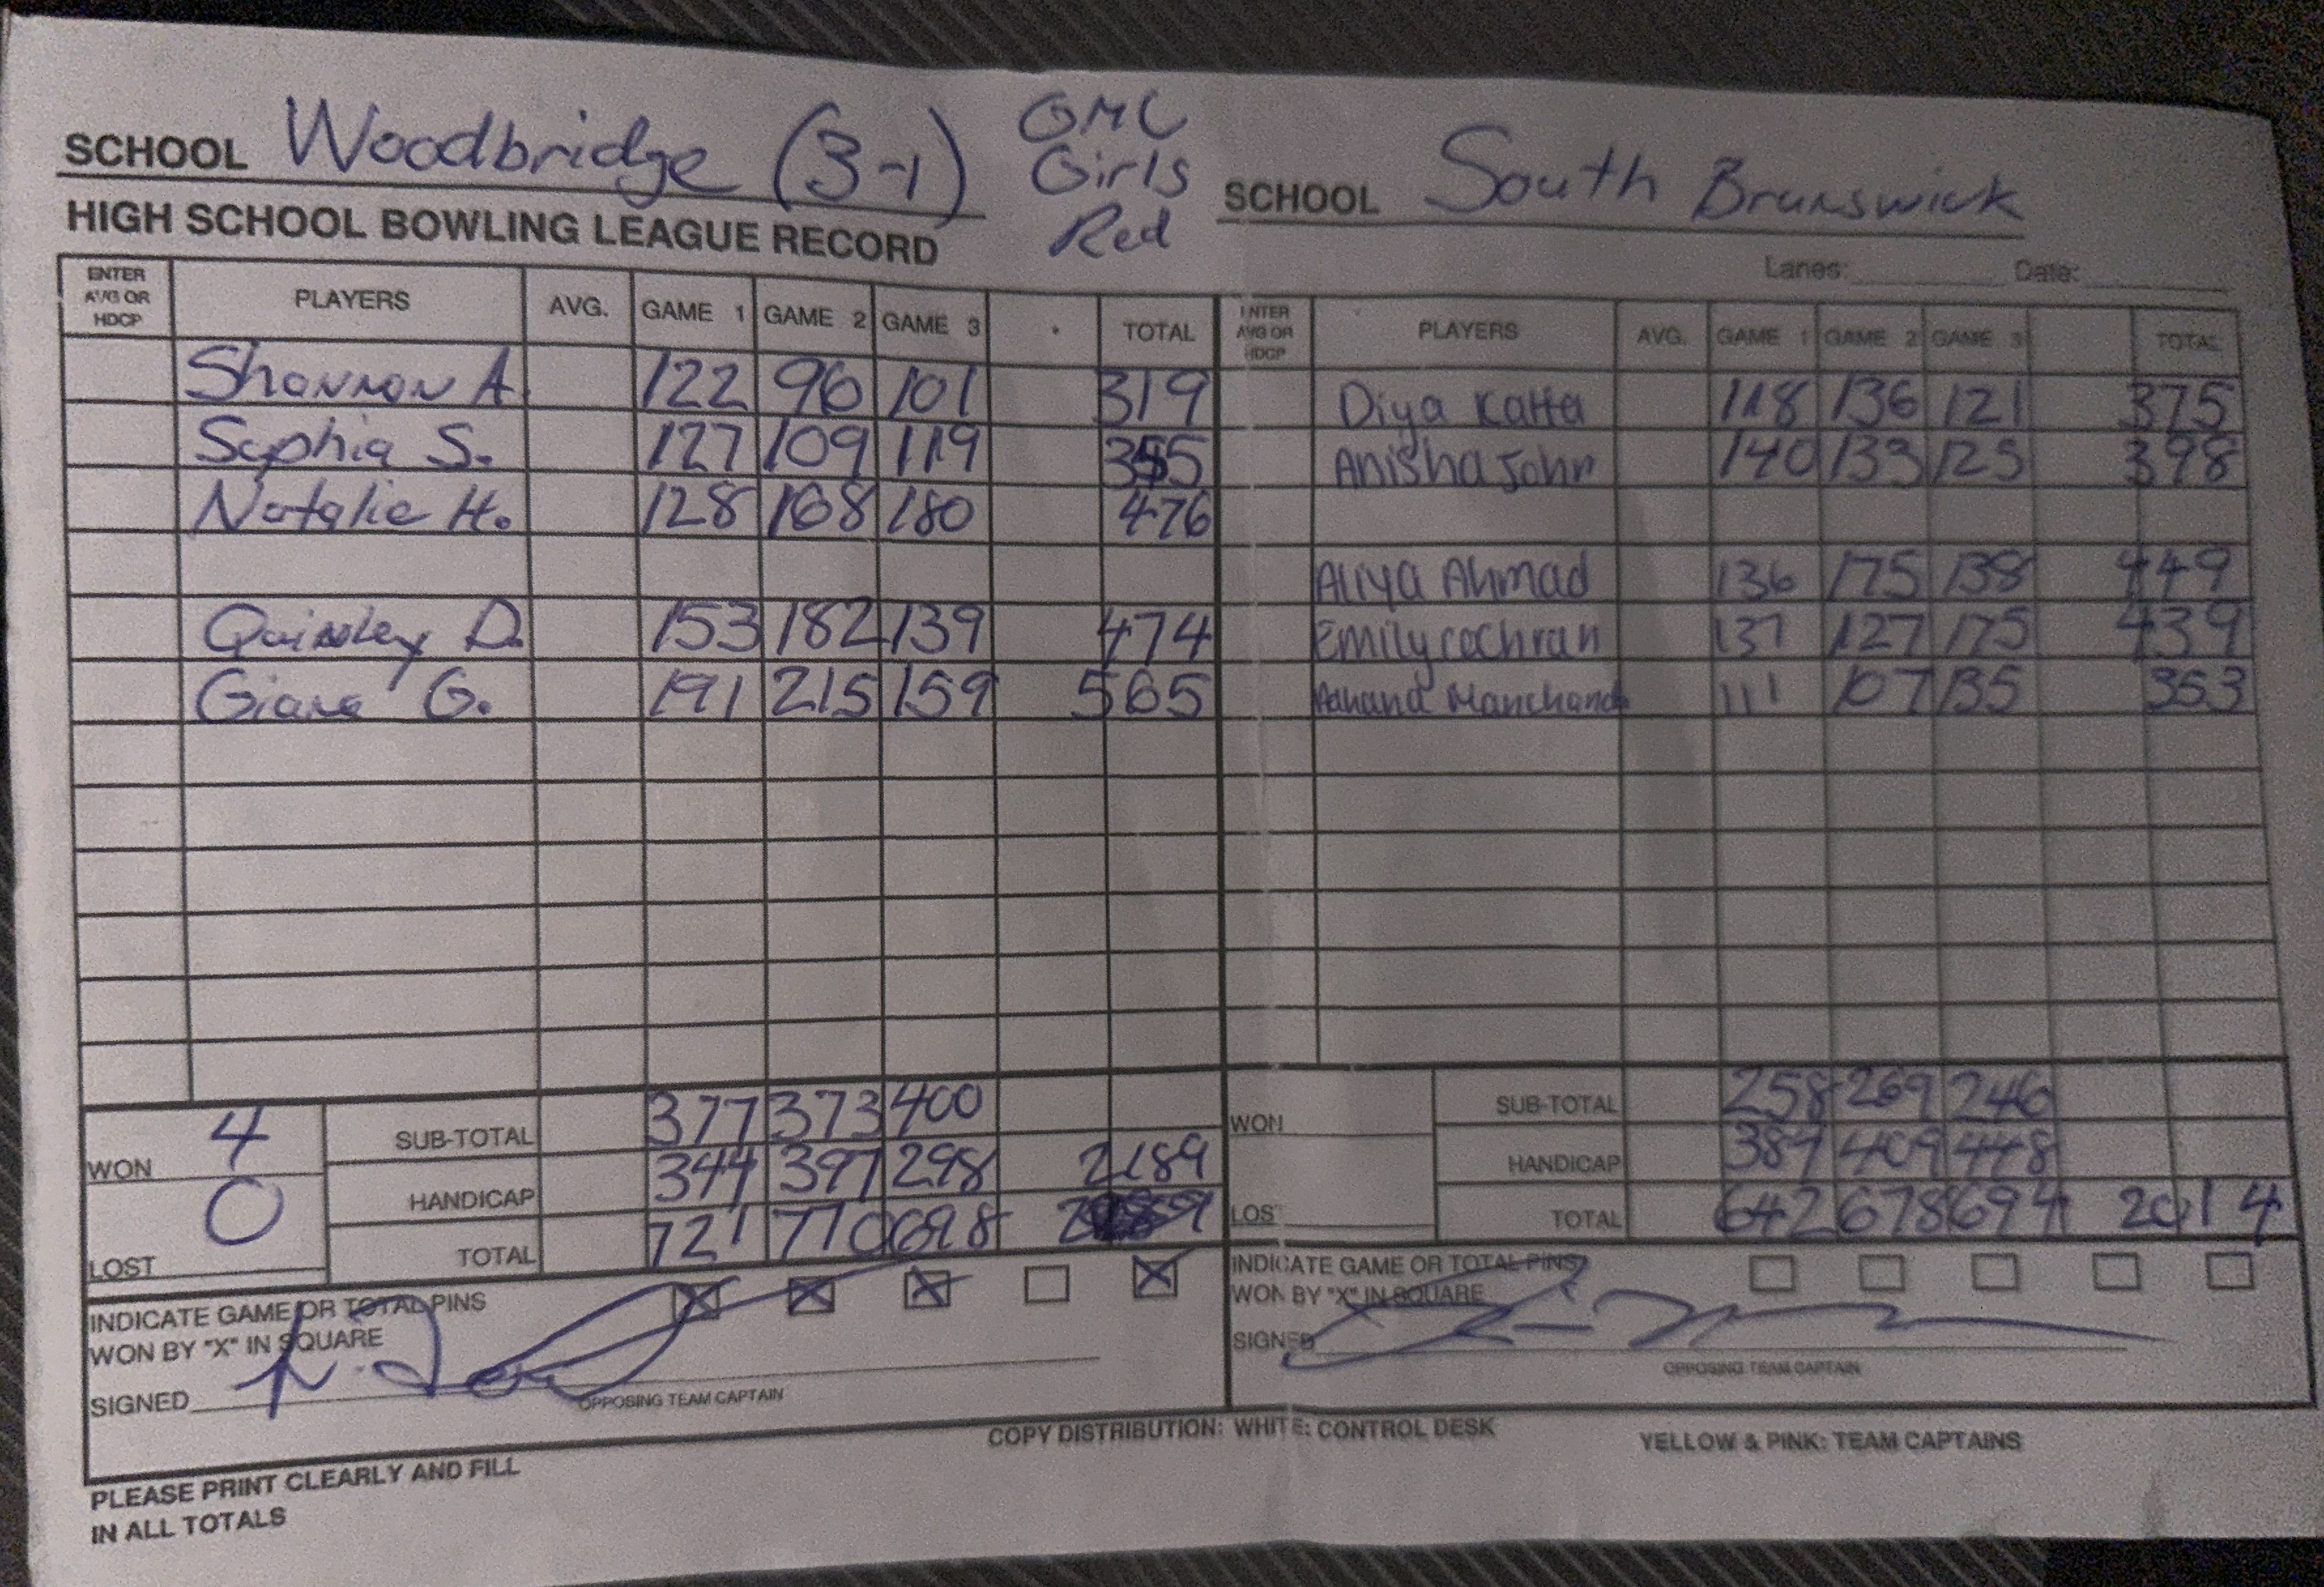 SCHOOL Woodbridge (3-1)
GMC
Girls
Red
SCHOOL South Brunswick
HIGH SCHOOL BOWLING LEAGUE RECORD
Lanes: Date:
ENTER AVG OR HDCP PLAYERS AVG. GAME 1 GAME 2 GAME 3 TOTAL
Shannon A. 122 96 101 319
Sophia S. 127 109 119 355
Natalie H. 128 168 180 476
Quinsley D. 153 182 139 474
Giana G. 191 215 159 565
SUB-TOTAL 377 373 400
HANDICAP 344 397 298 2189
TOTAL 721 770 698
WON 4
LOST 0
INDICATE GAME OR TOTAL PINS
WON BY "X" IN SQUARE
SIGNED
OPPOSING TEAM CAPTAIN
ENTER AVG OR HDCP PLAYERS AVG. GAME 1 GAME 2 GAME 3 TOTAL
Diya Katta 118 136 121 375
Anisha John 140 133 125 398
Aliya Ahmad 136 175 138 449
Emily cochran 137 127 175 439
Manchanda 111 107 135 353
WON
LOS
SUB-TOTAL 258 269 246
HANDICAP 384 409 448
TOTAL 642 678 694 2014
INDICATE GAME OR TOTAL PINS
WON BY "X" IN SQUARE
SIGNED
OPPOSING TEAM CAPTAIN
COPY DISTRIBUTION: WHITE: CONTROL DESK YELLOW & PINK: TEAM CAPTAINS
PLEASE PRINT CLEARLY AND FILL
IN ALL TOTALS